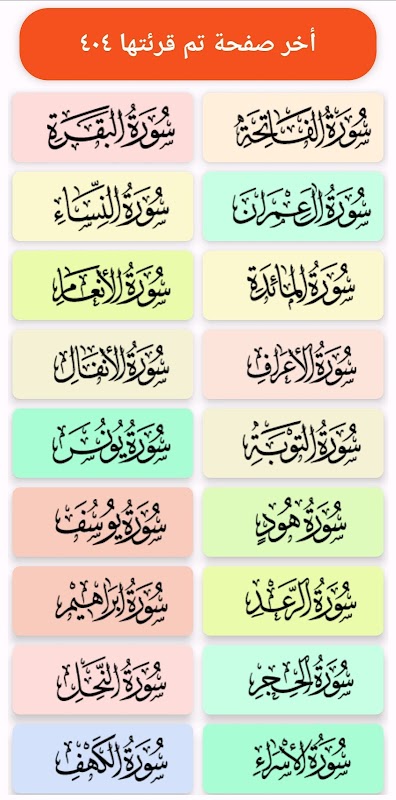 أخر صفحة تم قرئتها ٤٠٤
سُورَةُ الفَاتِحَةِ
سُورَةُ البَقَرَةِ
سُورَةُ آلِ عِمْرَانَ
سُورَةُ النِّسَاءِ
سُورَةُ المَائِدَةِ
سُورَةُ الأَنْعَامِ
سُورَةُ الأَعْرَافِ
سُورَةُ الأَنفَالِ
سُورَةُ التَّوْبَةِ
سُورَةُ يُونُسَ
سُورَةُ هُودٍ
سُورَةُ يُوسُفَ
سُورَةُ الرَّعْدِ
سُورَةُ إبْرَاهِيمَ
سُورَةُ الحِجْرِ
سُورَةُ النَّحْلِ
سُورَةُ الإسْرَاءِ
سُورَةُ الكَهْفِ